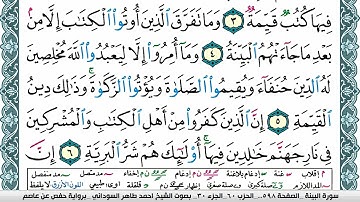 فِيهَا كُتُبٌ قَيِّمَةٌ ٣ وَمَا تَفَرَّقَ الَّذِينَ أُوتُوا الْكِتَابَ إِلَّا مِن
بَعْدِ مَا جَاءَتْهُمُ الْبَيِّنَةُ ٤ وَمَا أُمِرُوا إِلَّا لِيَعْبُدُوا اللَّهَ مُخْلِصِينَ
لَهُ الدِّينَ حُنَفَاءَ وَيُقِيمُوا الصَّلَوٰةَ وَيُؤْتُوا الزَّكَوٰةَ وَذَٰلِكَ دِينُ
الْقَيِّمَةِ ٥ إِنَّ الَّذِينَ كَفَرُوا مِنْ أَهْلِ الْكِتَابِ وَالْمُشْرِكِينَ
فِي نَارِ جَهَنَّمَ خَالِدِينَ فِيهَا أُولَٰئِكَ هُمْ شَرُّ الْبَرِيَّةِ ٦ إِنَّ
سورة البينة . الصفحة ٥٩٨ . الحزب ٦٠ . الجزء ٣٠ . بصوت الشيخ احمد طاهر السوداني . برواية حفص عن عاصم